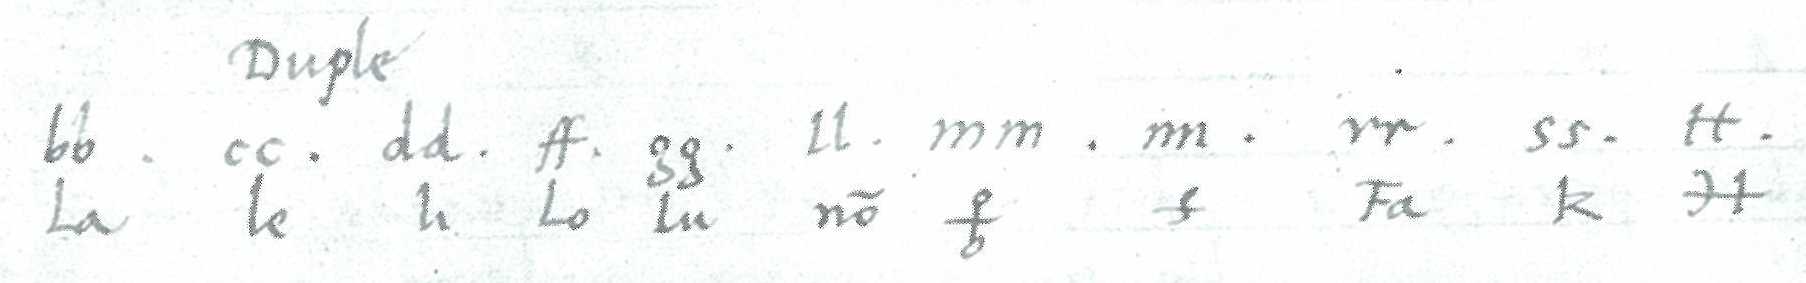 Duple
bb . cc . dd . ff . gg . ll . mm . nn . rr . ss . tt .
La le li Lo Lu nõ Fa k